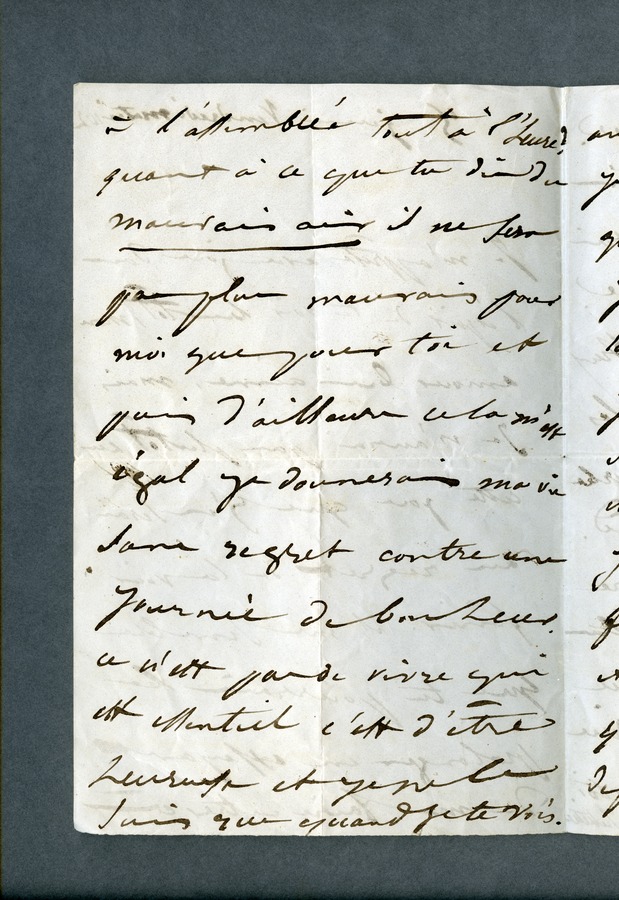 à l'assemblée tout à l'heure
quant à ce que tu dis du
mauvais air il ne sera
pas plus mauvais pour
moi que pour toi et
puis d'ailleurs cela m'est
égal je donnerais ma vie
sans regret contre une
journée de bonheur.
ce n'est pas de vivre qui
est essentiel c'est d'être
heureuse et je ne le
suis que quand je te vois.